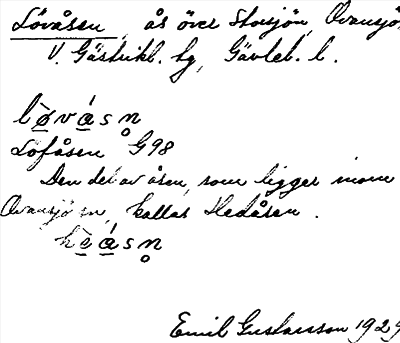 Lövåsen, ås över Storsjön, Ovansjö
V. Gästrikl. hg, Gävleb. l.
lø̀vásn̥
Lofåsen G98
Den del av åsen, som ligger inom
Ovansjö sn, kallas Hedåsen.
hè̱ásn̥
Emil Gustavsson 1929